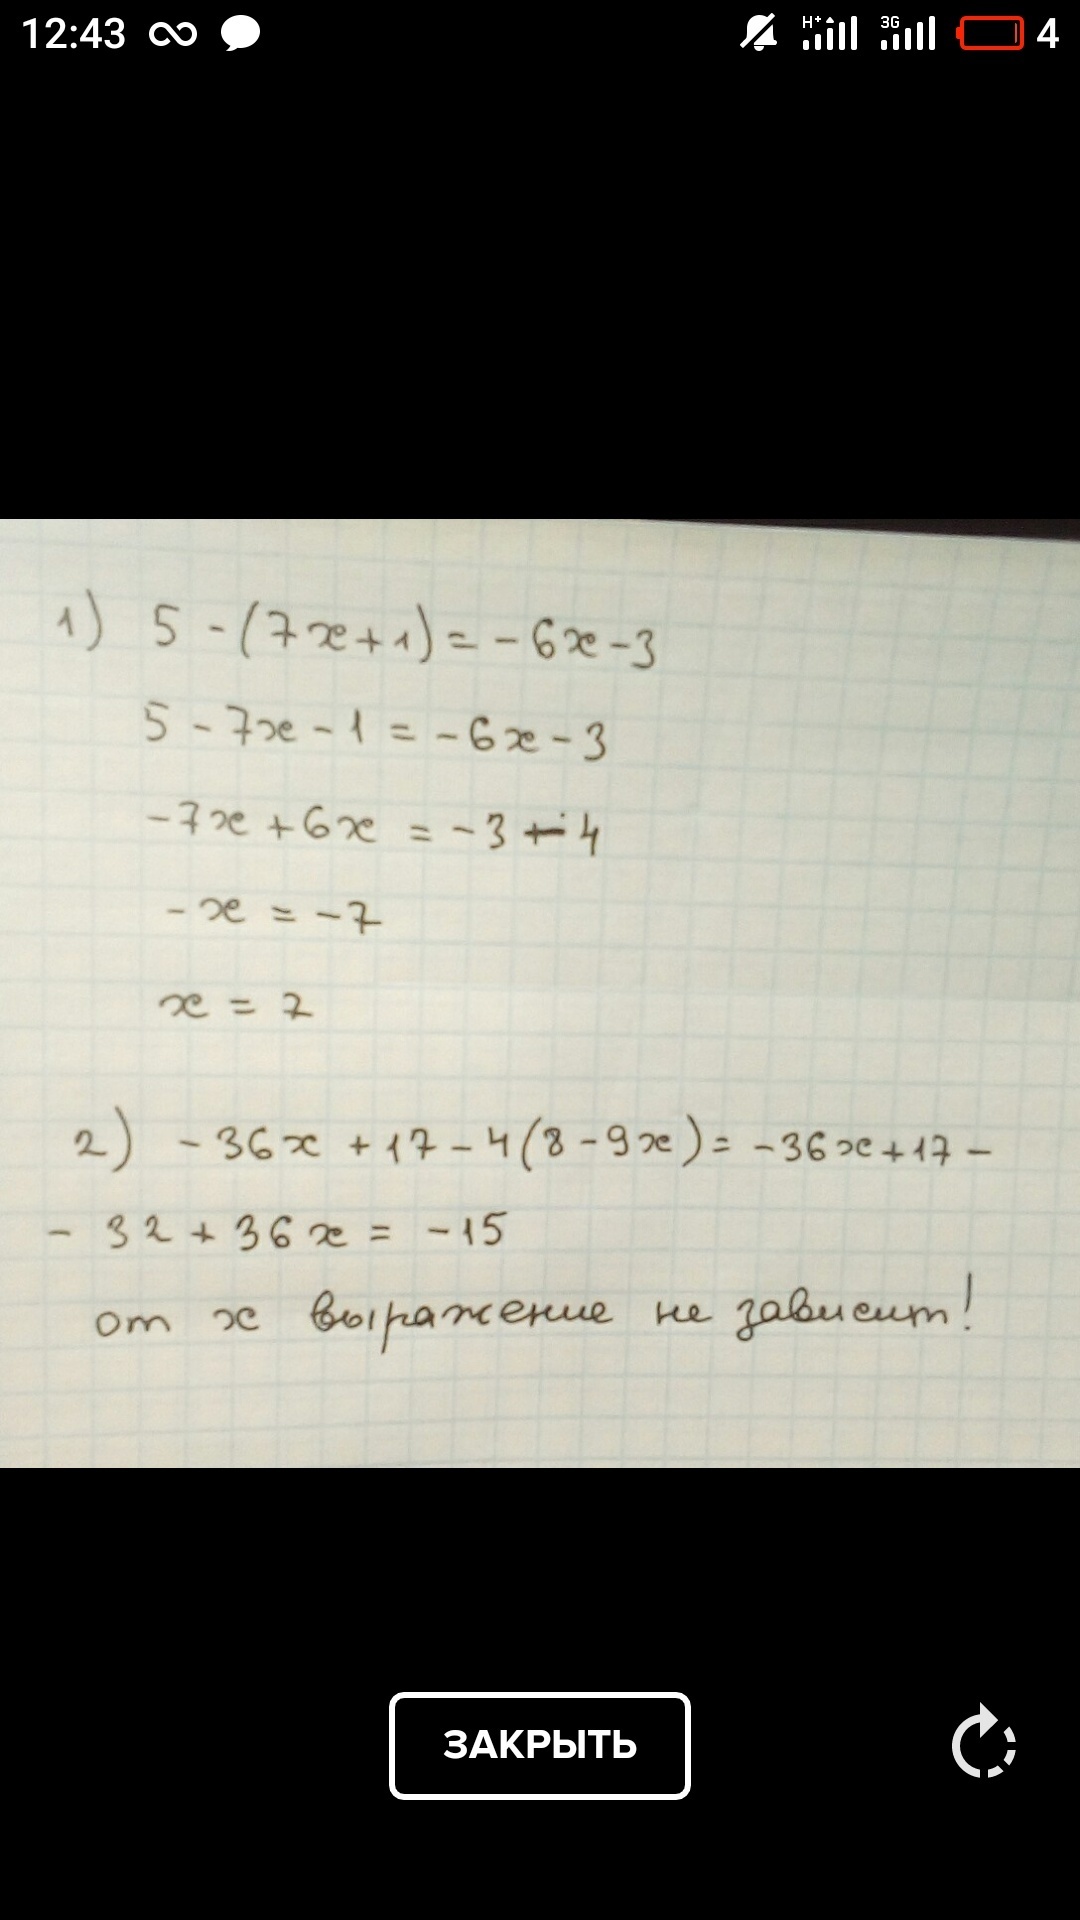 12:43 H+ 3G 4
1) 5 - (7x+1) = -6x-3
5 - 7x - 1 = -6x - 3
-7x + 6x = -3 - 4
-x = -7
x = 7
2) -36x + 17 - 4(8-9x) = -36x + 17 -
- 32 + 36x = -15
от x выражение не зависит!
ЗАКРЫТЬ